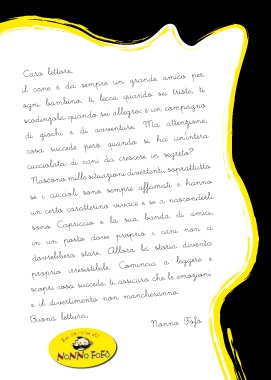 Caro lettore,
il cane è da sempre un grande amico per
ogni bambino, ti lecca quando sei triste, ti
scodinzola quando sei allegro; è un compagno
di giochi e di avventure. Ma attenzione,
cosa succede però quando si ha un'intera
cucciolata di cani da crescere in segreto?
Nascono mille situazioni divertenti, soprattutto
se i cuccioli sono sempre affamati e hanno
un certo caratterino vivace e se a nasconderli
sono Capriccio e la sua banda di amici,
in un posto dove proprio i cani non ci
dovrebbero stare. Allora la storia diventa
proprio irresistibile. Comincia a leggere e
scopri cosa succede, ti assicuro che le emozioni
e il divertimento non mancheranno.
Buona lettura,
Nonno Fofò
NONNO FOFÒ